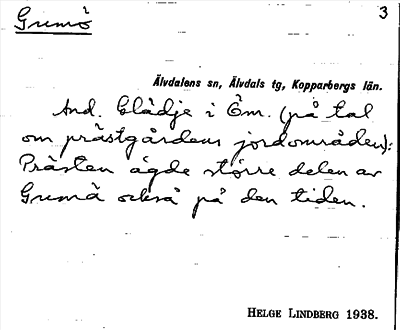 Grumö 3
Älvdalens sn, Älvdals tg, Kopparbergs län.
And. Clådje i Öm. (på tal
om prästgårdens jordområden):
Prästen ägde större delen av
Grumö också på den tiden.
HELGE LINDBERG 1938.